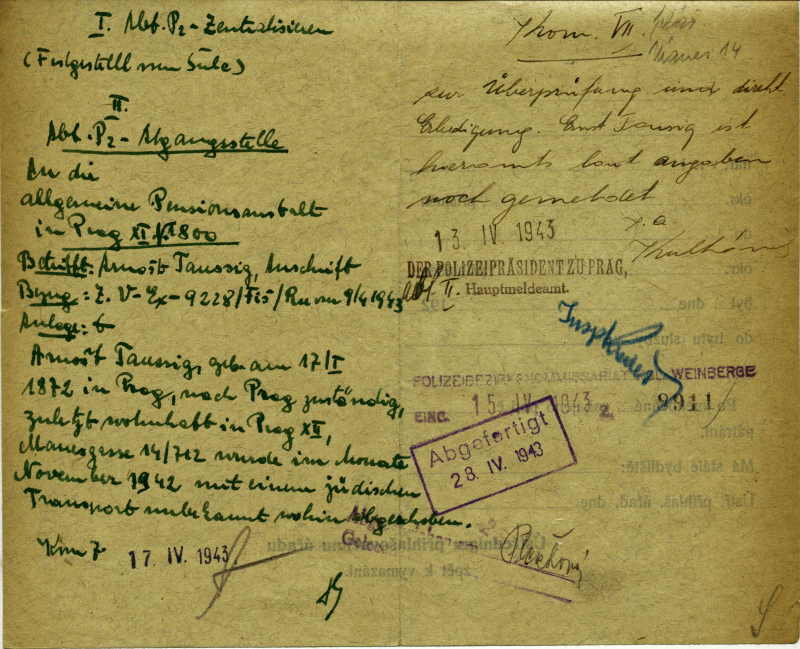 I. Abt. P2 - Zentralisieren
II.
Abt. P2 - Abgangsstelle
An die
allgemeine Pensionsanstalt
in Prag XII 1800
Betrifft: Arnošt Taussig, Anschrift
Bezug: Z. V-Ex-9228/ vom 9/4 1943
Arnošt Taussig, geb. am 17/I
1872 in Prag, nach Prag zuständig,
zuletzt wohnhaft in Prag XII,
Manesgasse 14/712 wurde im Monate
November 1942 mit einem jüdischen
Transport unbekannt wohin abgeschoben.
Kom 7 17 IV. 1943
Kom. VII.
Manes 14
zur Überprüfung und direkt
Erledigung. Ernst Taussig ist
hieramts laut angaben
noch gemeldet
13. IV. 1943
DER POLIZEIPRÄSIDENT ZU PRAG,
Abt II. Hauptmeldeamt.
POLIZEIBEZIRKSKOMMISSARIAT WEINBERGE
EING. 15. IV. 1943 Z. 8911
Abgefertigt
28. IV. 1943